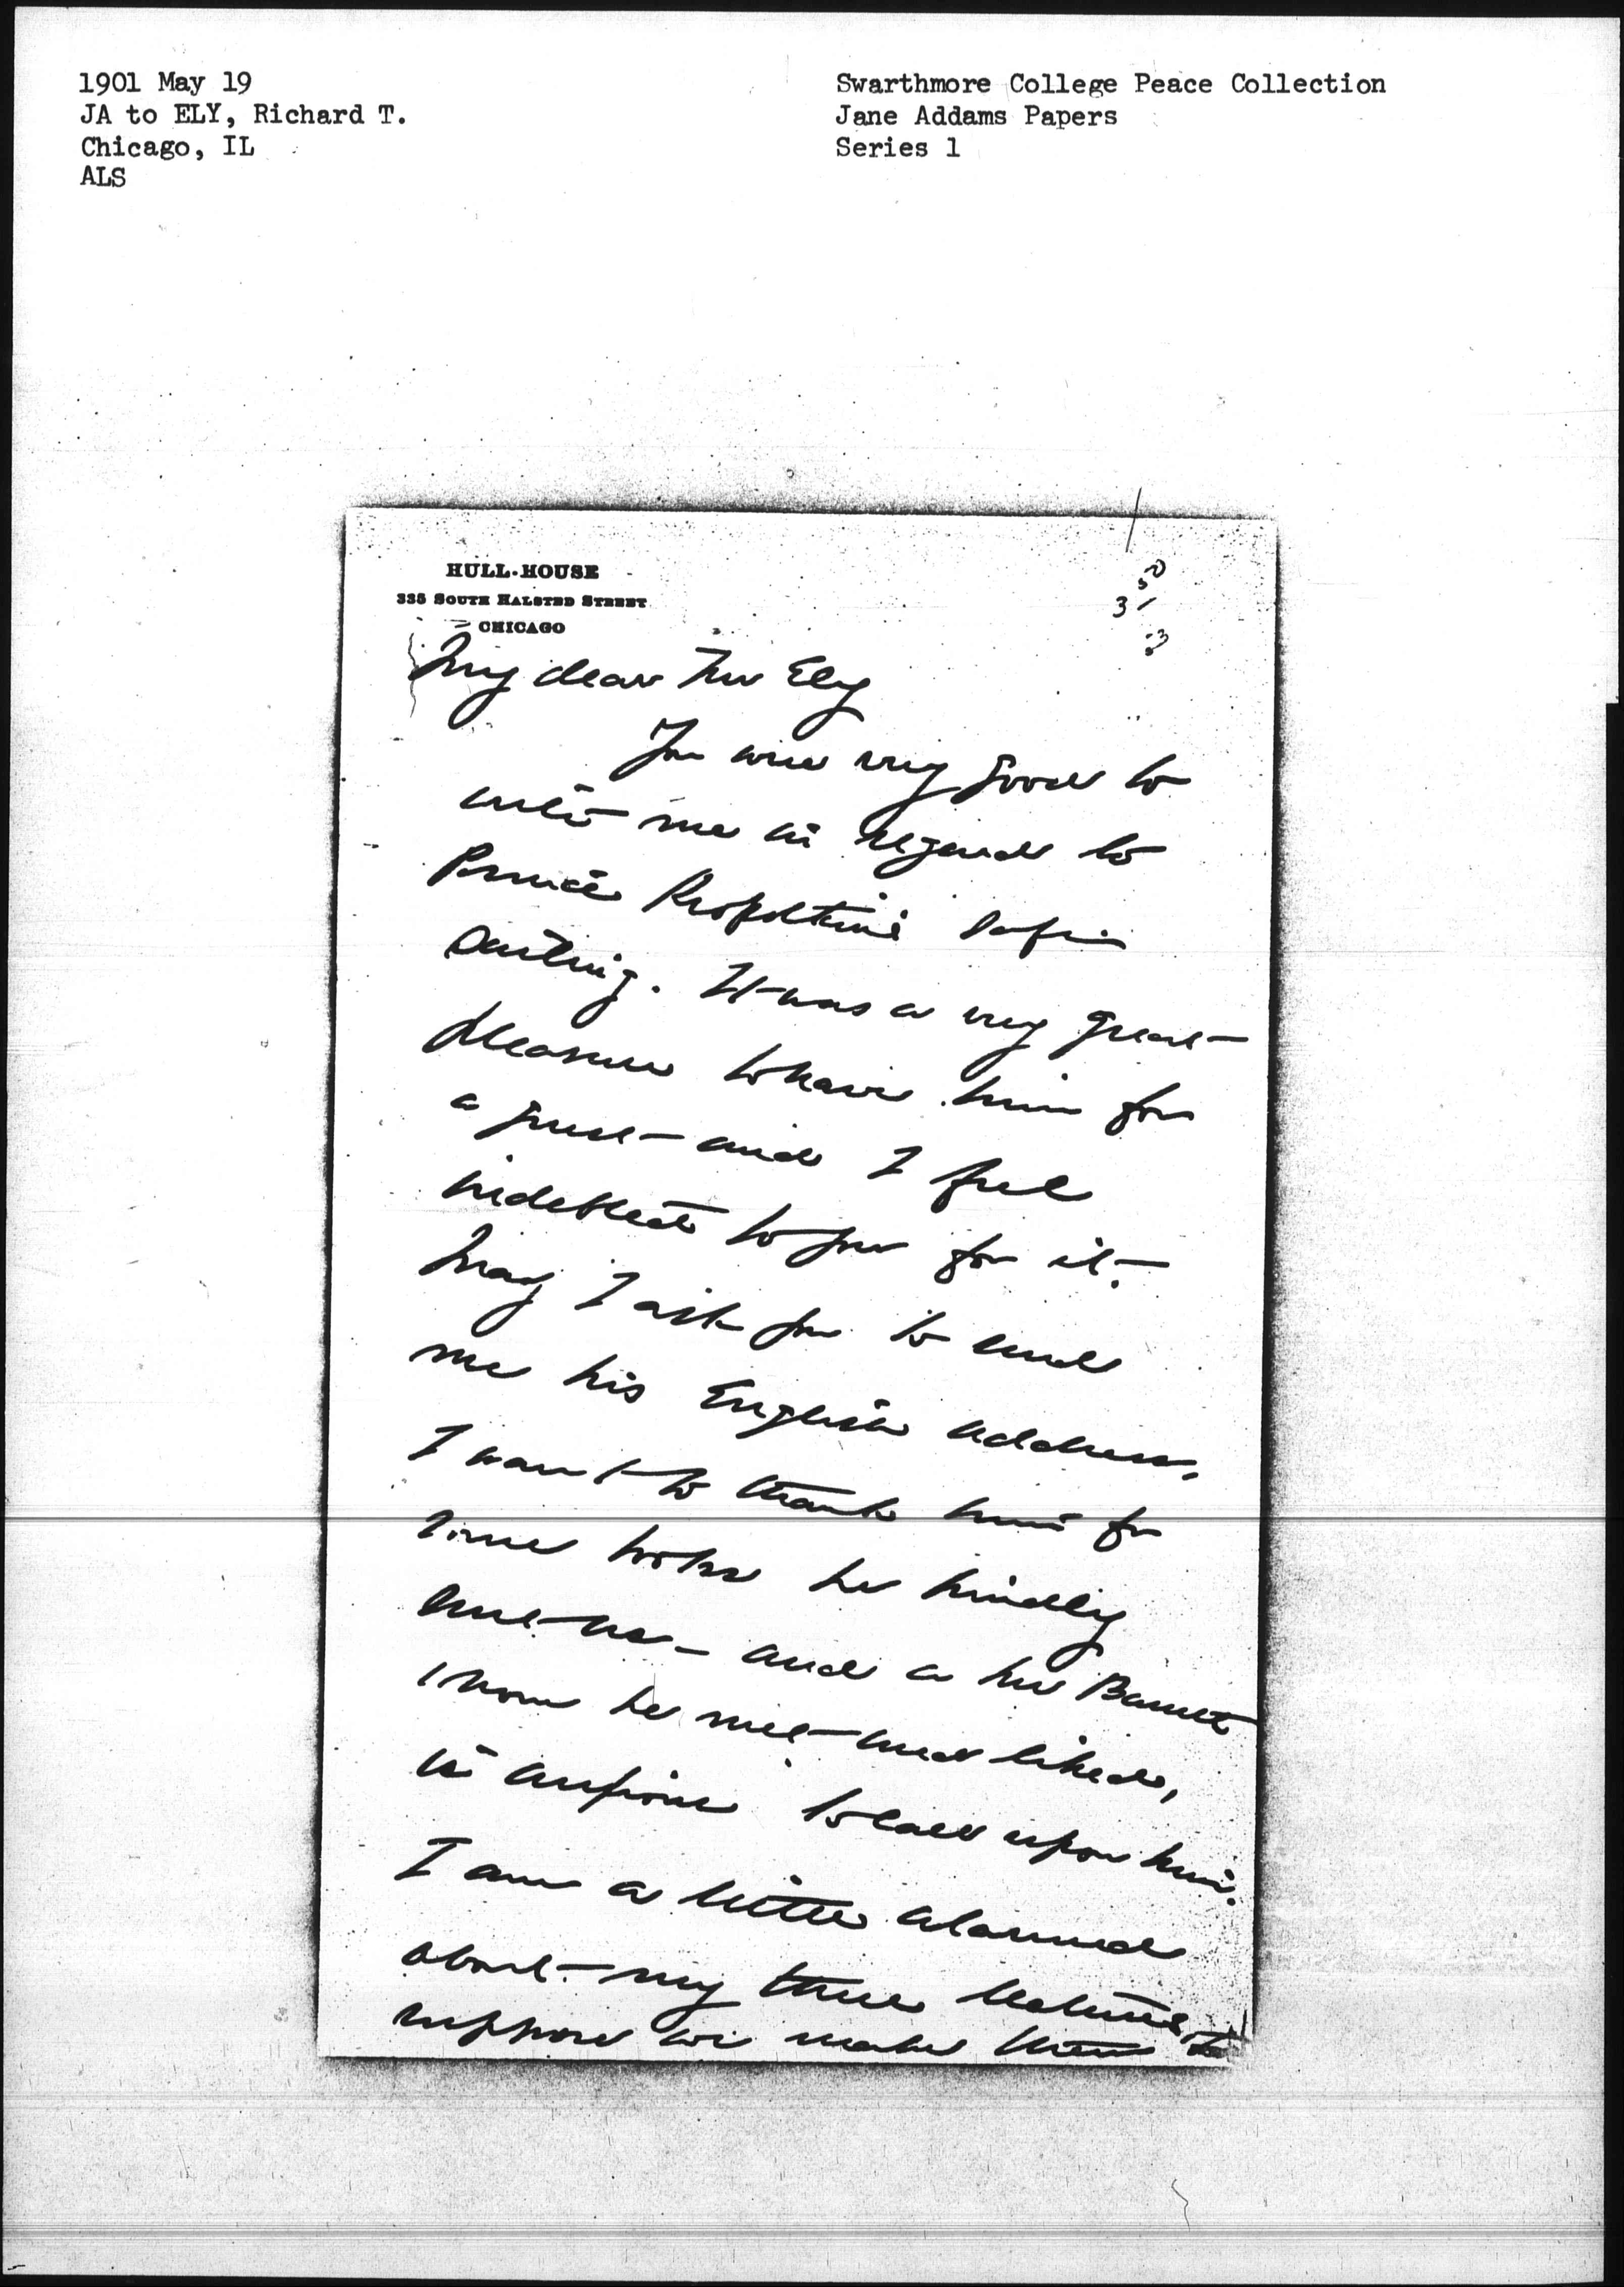 1901 May 19
JA to ELY, Richard T.
Chicago, IL
ALS
Swarthmore College Peace Collection
Jane Addams Papers
Series 1
HULL-HOUSE
335 SOUTH HALSTED STREET
CHICAGO
My dear Mr Ely
You were very good to
write me in regard to
Prince Kropotkin's safe
sailing. It was a very great
pleasure to have him for
a guest and I feel
indebted to you for it.
May I ask you to send
me his English address,
I want to thank him for
some books he kindly
sent us — and a Mr Barnett
whom he met and liked,
is anxious to call upon him.
I am a little alarmed
about my three lectures,
suppose we make them